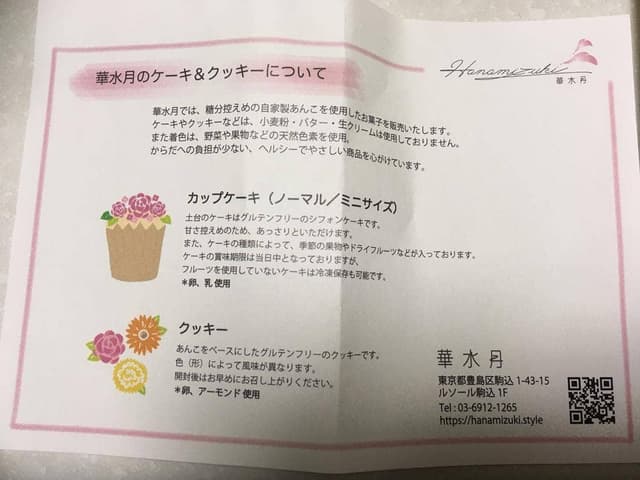 華水月のケーキ＆クッキーについて
Hanamizuki
華水月
華水月では、糖分控えめの自家製あんこを使用したお菓子を販売いたします。
ケーキやクッキーなどは、小麦粉・バター・生クリームは使用しておりません。
また着色は、野菜や果物などの天然色素を使用。
からだへの負担が少ない、ヘルシーでやさしい商品を心がけています。
カップケーキ（ノーマル／ミニサイズ）
土台のケーキはグルテンフリーのシフォンケーキです。
甘さ控えめのため、あっさりといただけます。
また、ケーキの種類によって、季節の果物やドライフルーツなどが入っております。
ケーキの賞味期限は当日中となっておりますが、
フルーツを使用していないケーキは冷凍保存も可能です。
＊卵、乳 使用
クッキー
あんこをベースにしたグルテンフリーのクッキーです。
色（形）によって風味が異なります。
開封後はお早めにお召し上がりください。
＊卵、アーモンド 使用
華水月
東京都豊島区駒込 1-43-15
ルソール駒込 1F
Tel : 03-6912-1265
https://hanamizuki.style